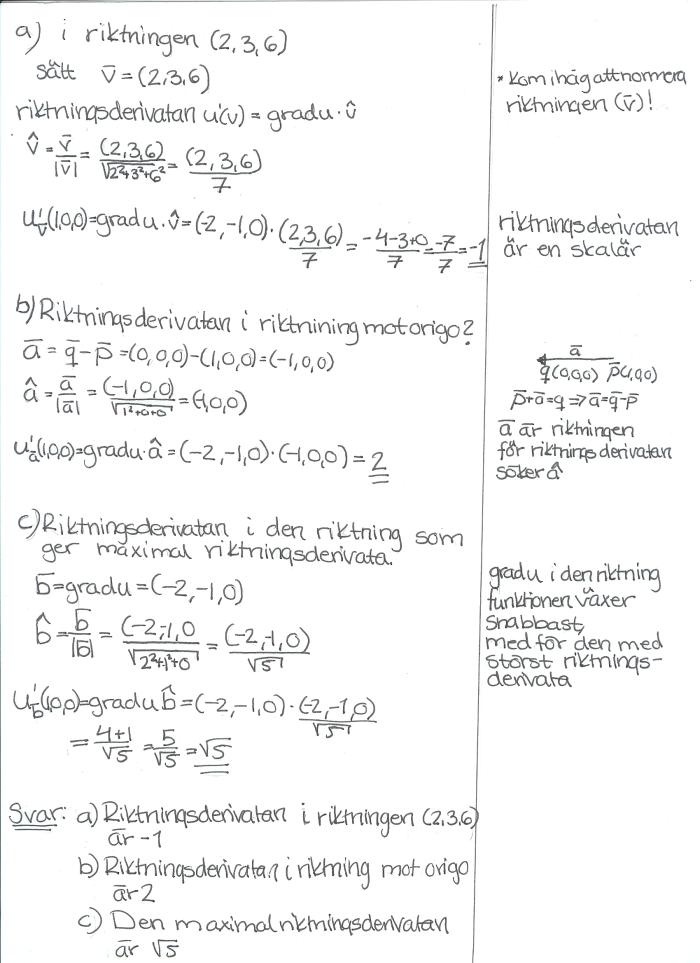 a) i riktningen (2,3,6)
sätt v̄ = (2,3,6)
riktningsderivatan u'(v) = gradu · v̂
v̂ = v̄/|v̄| = (2,3,6)/√(2²+3²+6²) = (2,3,6)/7
u'v̄(1,0,0) = gradu · v̂ = (-2,-1,0) · (2,3,6)/7 = (-4-3+0)/7 = -7/7 = -1
* Kom ihåg att normera
riktningen (v̄)!
riktningsderivatan
är en skalär
b) Riktningsderivatan i riktnining mot origo?
ā = q̄ - p̄ = (0,0,0) - (1,0,0) = (-1,0,0)
â = ā/|ā| = (-1,0,0)/√(1²+0+0) = (-1,0,0)
u'ā(1,0,0) = gradu · â = (-2,-1,0) · (-1,0,0) = 2
ā
q̄(0,0,0) p̄(1,0,0)
p̄ + ā = q ⇒ ā = q̄ - p̄
ā är riktningen
för riktnings derivatan
söker â
c) Riktningsderivatan i den riktning som
ger maximal riktningsderivata.
b̄ = gradu = (-2,-1,0)
b̂ = b̄/|b̄| = (-2,-1,0/√(2²+1²+0) = (-2,-1,0)/√5
u'b̄(1,0,0) = gradu b̂ = (-2,-1,0) · (-2,-1,0)/√5
= (4+1)/√5 = 5/√5 = √5
gradu i den riktning
funktionen växer
snabbast,
med för den med
störst riktnings-
derivata
Svar: a) Riktningsderivatan i riktningen (2,3,6)
är -1
b) Riktningsderivatan i riktning mot origo
är 2
c) Den maximal riktningsderivatan
är √5